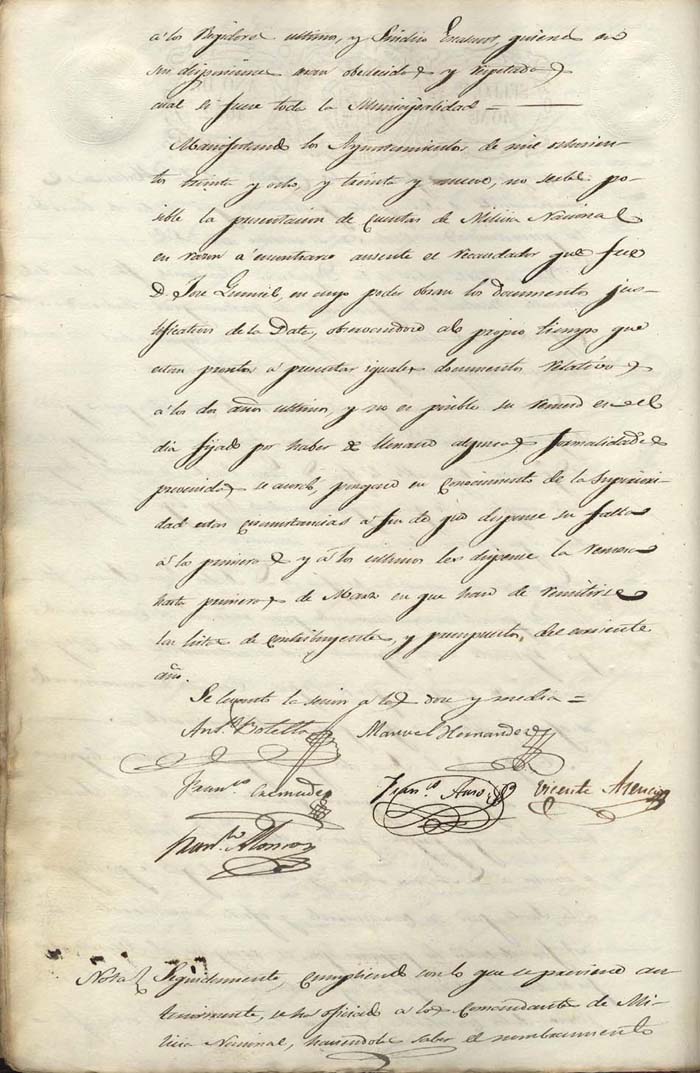 á los Regidores ultimos, y Sindico Escasas, quienes en
sus disposiciones sean obedecidos y respetados
cual si fuese toda la Municipalidad =
Manifestando los Ayuntamientos de mil ochocien-
tos treinta y ocho, y treinta y nueve, no serles po-
sible la presentacion de Cuentas de Milicia Nacional
en razon á encontrarse ausente el recaudador que fue
D. Jose Gumiel, en cuyo poder obran los Documentos jus-
tificativos de la Data, observandose al propio tiempo que
estan prontos á presentar iguales documentos relativos
á los dos años ultimos, y no es posible su remesa en el
dia fijado por haber de llenarse algunas formalidades
prevenidas se acordó, pongase en Conocimiento de la Superiori-
dad estas circunstancias á fin de que dispense su falta
á los primeros y á los ultimos les dispense la remesa
hasta primeros de Marzo en que han de remitirse
las listas de Contribuyentes, y presupuestos, del corriente
año.
Se levanto la sesion a las doce y media =
Ant.º Botella Manuel Hernandez
Fran.co Cremades Fran.co Vicente Asencio
Fran.co
Nota Seguidamente, cumpliendo con lo que se previene an-
teriormente, se ha oficiado a los Comandantes de Mi-
licia Nacional, haciendoles saber el nombramiento